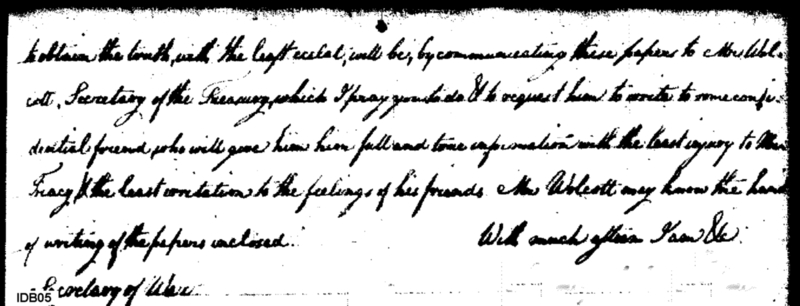 to obtain the truth, with the least eclat, will be, by communicating these papers to Mr Wol-
cott, Secretary of the Treasury, which I pray you to do & to request him to write to some confi-
dential friend, who will give him him full and true information with the least injury to
Tracy & the least irritation to the feelings of his friends. Mr Wolcott may know the hand
of writing of the papers inclosed. With much esteem I am &c
Secretary of War
IDB05